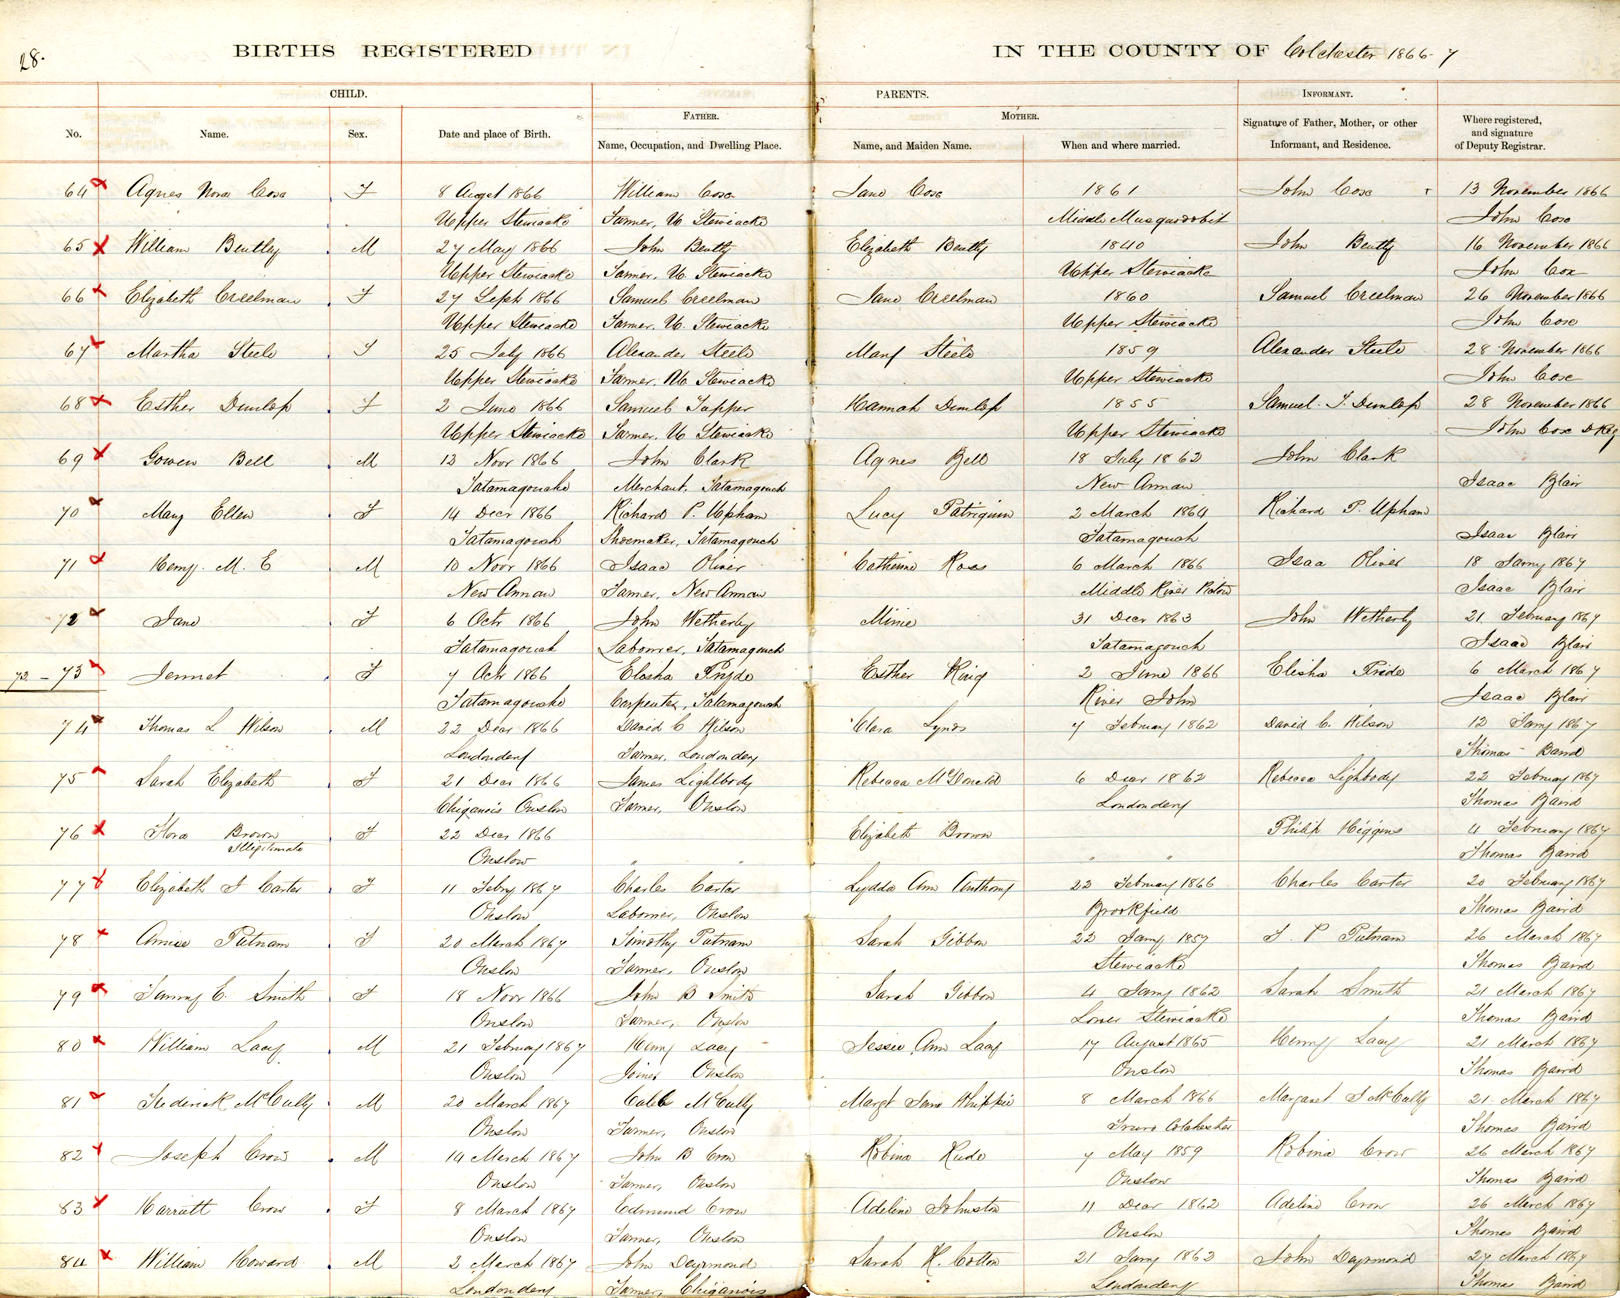 28.
BIRTHS REGISTERED IN THE COUNTY OF Colchester 1866-7
CHILD. PARENTS. INFORMANT.
FATHER. MOTHER.
No. Name. Sex. Date and place of Birth. Name, Occupation, and Dwelling Place. Name, and Maiden Name. When and where married. Signature of Father, Mother, or other Informant, and Residence. Where registered, and signature of Deputy Registrar.
64 Agnes Nora Cox F 8 Augst 1866 William Cox Jane Cox 1861 John Cox 13 November 1866
Upper Stewiacke Farmer, U Stewiacke Middle Musquodobit John Cox
65 William Bently M 27 May 1866 John Bently Elizabeth Bently 1840 John Bently 16 November 1866
Upper Stewiacke Farmer, U Stewiacke Upper Stewiacke John Cox
66 Elizabeth Creelman F 27 Sept 1866 Samuel Creelman Jane Creelman 1860 Samuel Creelman 26 November 1866
Upper Stewiacke Farmer, U. Stewiacke Upper Stewiacke John Cox
67 Martha Steele F 25 July 1866 Alexander Steele Mary Steele 1859 Alexander Steele 28 November 1866
Upper Stewiacke Farmer, U Stewiacke Upper Stewiacke John Cox
68 Esther Dunlop F 2 June 1866 Samuel Tupper Hannah Dunlop 1855 Samuel T. Dunlop 28 November 1866
Upper Stewiacke Farmer, U Stewiacke Upper Stewiacke John Cox D Reg
69 Gowen Bell M 12 Novr 1866 John Clark Agnes Bell 18 July 1862 John Clark
Tatamagouche Merchant, Tatamagouch New Annan Isaac Blair
70 Mary Ellen F 14 Decr 1866 Richard P. Upham Lucy Patriquin 2 March 1864 Richard P. Upham
Tatamagouch Shoemaker, Tatamagouch Tatamagouch Isaac Blair
71 Henry M. E M 10 Novr 1866 Isaac Oliver Catherine Ross 6 March 1866 Isaa Oliver 18 Jany 1867
New Annan Farmer, New Annan Middle River Pictou Isaac Blair
72 Jane F 6 Octr 1866 John Wetherby Minie 31 Decr 1863 John Wetherby 21 February 1867
Tatamagouch Labourer, Tatamagouch Tatamagouch Isaac Blair
72 - 73 Jennet F 7 Octr 1866 Elosha Pryde Esther King 2 June 1866 Elisha Pride 6 March 1867
Tatamagouche Carpenter, Tatamagouch River John Isaac Blair
74 Thomas L Wilson M 22 Decr 1866 David C Wilson Clara Lynds 7 February 1862 David C. Wilson 12 Jany 1867
Londondery Farmer, Londondery Thomas Baird
75 Sarah Elizabeth F 21 Decr 1866 James Lightbody Rebecca McDonald 6 Decr 1862 Rebecca Lighbody 22 February 1867
Chiganois Onslow Farmer, Onslow Londondery Thomas Baird
76 Flora Brown F 22 Decr 1866 Elizabeth Brown Philip Higgins 4 February 1867
Illegitimate Onslow " " " " Thomas Baird
77 Elizabeth J Carter F 11 Febry 1867 Charles Carter Lydda Ann Anthony 22 February 1866 Charles Carter 20 February 1867
Onslow Laborner, Onslow Brookfield Thomas Baird
78 Amice Putnam F 20 March 1867 Timothy Putnam Sarah Gibbon 22 Jany 1857 T. P Putnam 26 March 1867
Onslow Farmer, Onslow Stewiacke Thomas Baird
79 Fanny E. Smith F 18 Novr 1866 John B Smith Sarah Gibbon 4 Jany 1862 Sarah Smith 21 March 1867
Onslow Farmer, Onslow Lower Stewiacke Thomas Baird
80 William Lacy M 21 February 1867 Henry Lacy Jessie Ann Lacy 17 August 1865 Henry Lacy 21 March 1867
Onslow Joiner Onslow Onslow Thomas Baird
81 Frederick McCully M 20 March 1867 Caleb McCully Margt Jane Whippie 8 March 1866 Margaret J McCully 21 March 1867
Onslow Farmer, Onslow Truro Colchester Thomas Baird
82 Joseph Crow M 14 March 1867 John B Crow Robina Rude 7 May 1859 Robina Crow 26 March 1867
Onslow Farmer, Onslow Onslow Thomas Baird
83 Harriett Crow F 8 March 1867 Edmund Crow Adeline Johnston 11 Decr 1862 Adeline Crow 26 March 1867
Onslow Farmer, Onslow Onslow Thomas Baird
84 William Howard M 2 March 1867 John Daymond Sarah H. Cotton 21 Jany 1862 John Daymond 27 March 1867
Londondery Farmer, Chiganois Londondery Thomas Baird